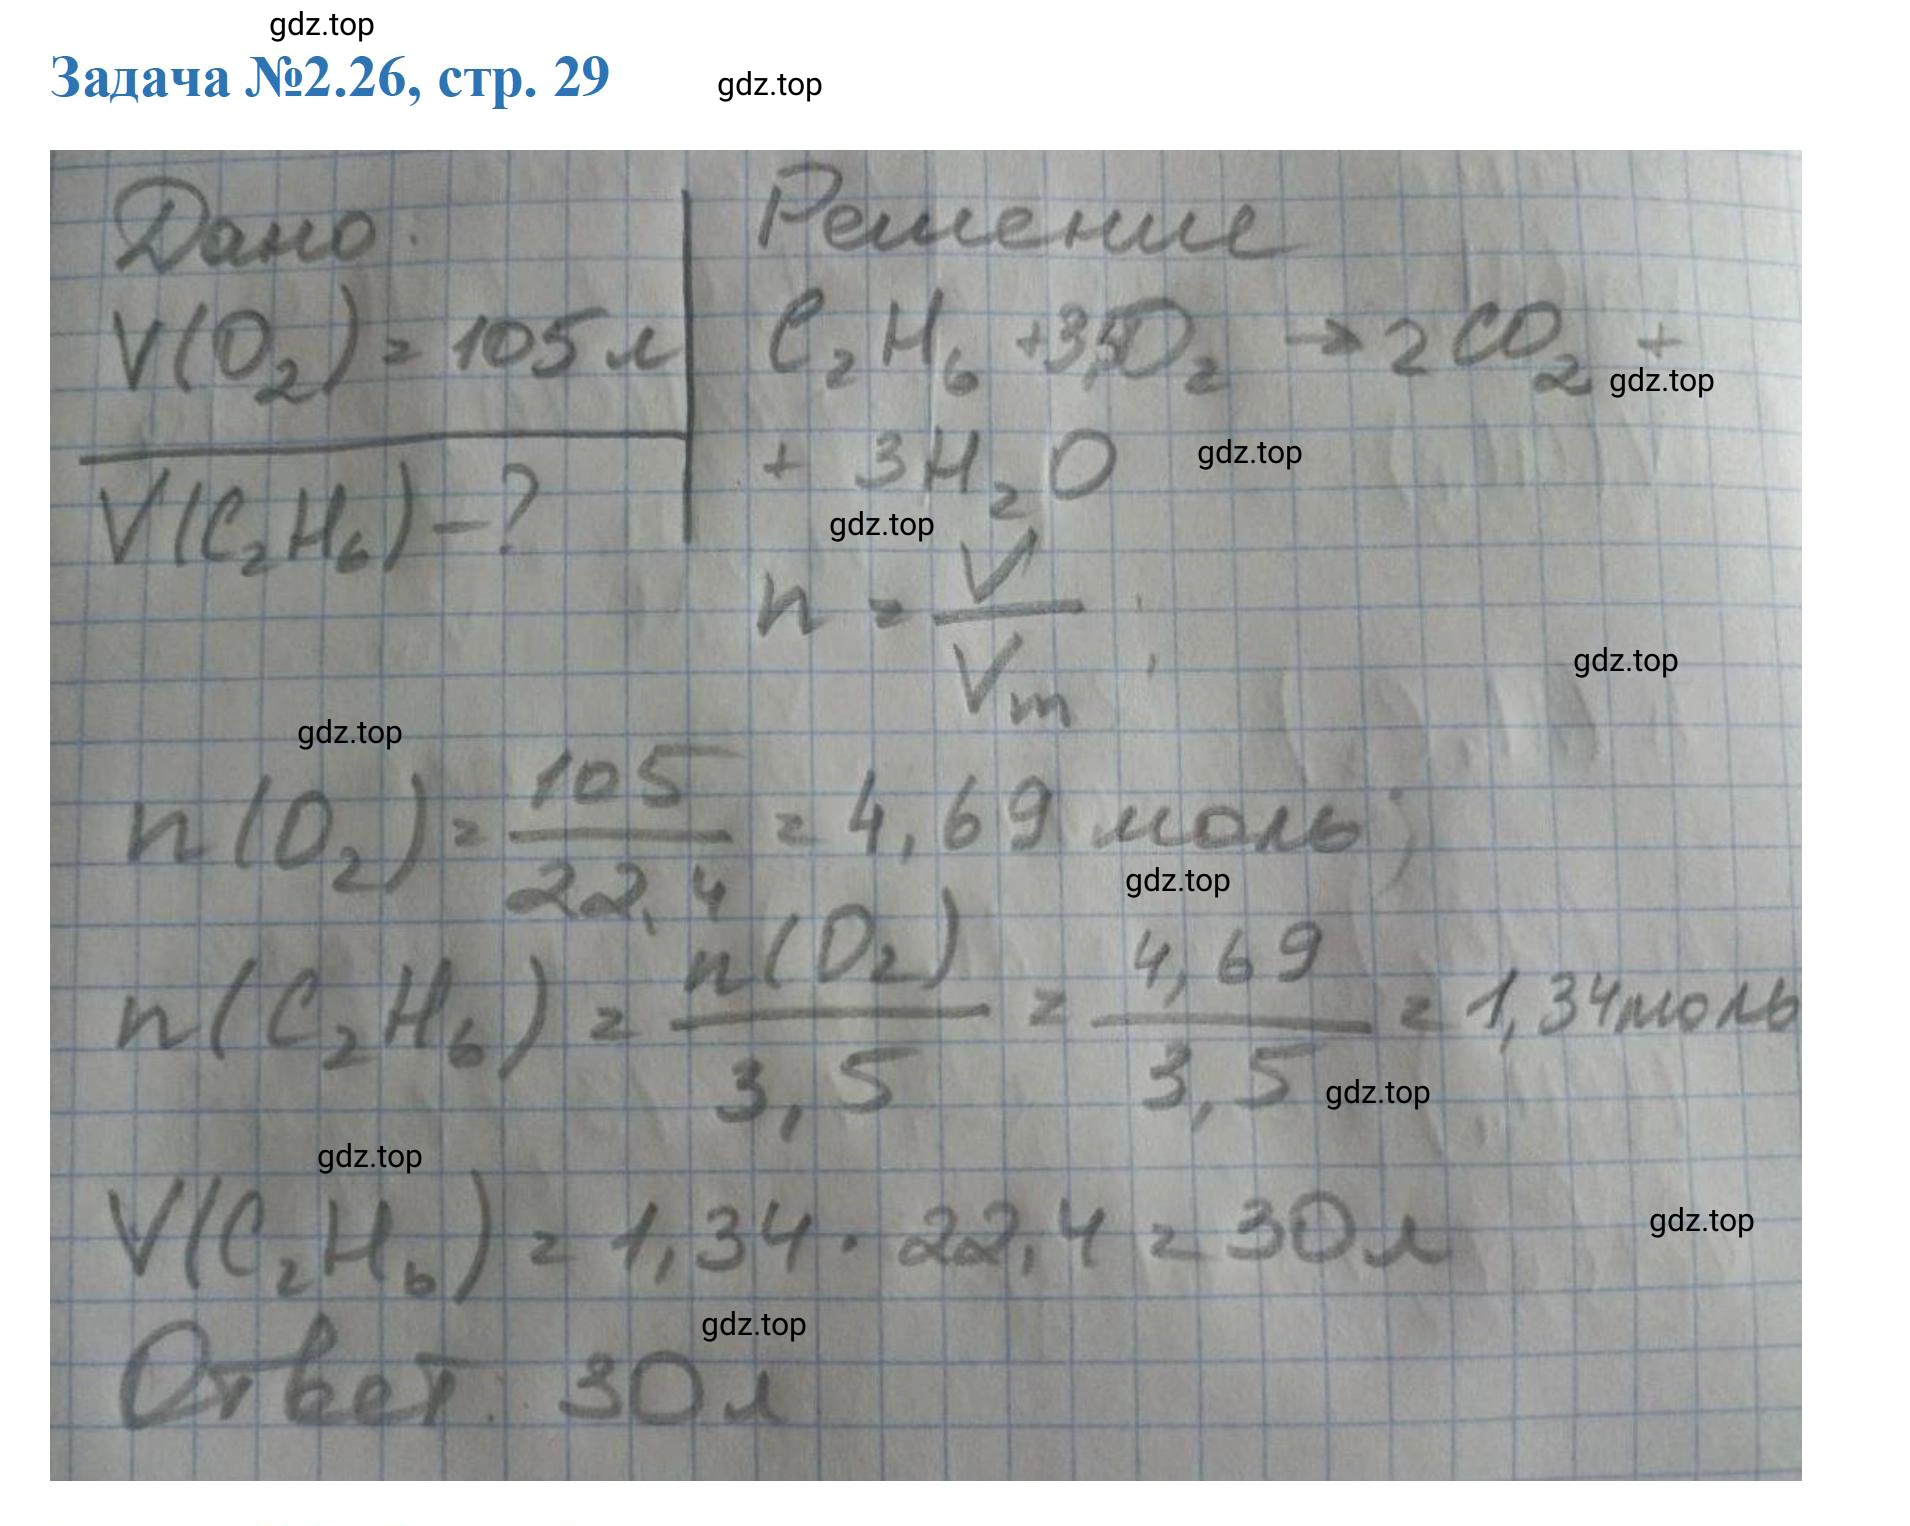 gdz.top
Задача №2.26, стр. 29
gdz.top
Дано.
V(O₂) = 105 л
V(C₂H₆) – ?
Решение
C₂H₆ + 3,5O₂ → 2CO₂ +
gdz.top
+ 3H₂O
gdz.top
gdz.top
n = V / Vm ;
gdz.top
gdz.top
n(O₂) = 105 / 22,4 = 4,69 моль;
gdz.top
n(C₂H₆) = n(O₂) / 3,5 = 4,69 / 3,5 = 1,34 моль
gdz.top
gdz.top
V(C₂H₆) = 1,34 · 22,4 = 30 л
gdz.top
gdz.top
Ответ. 30 л